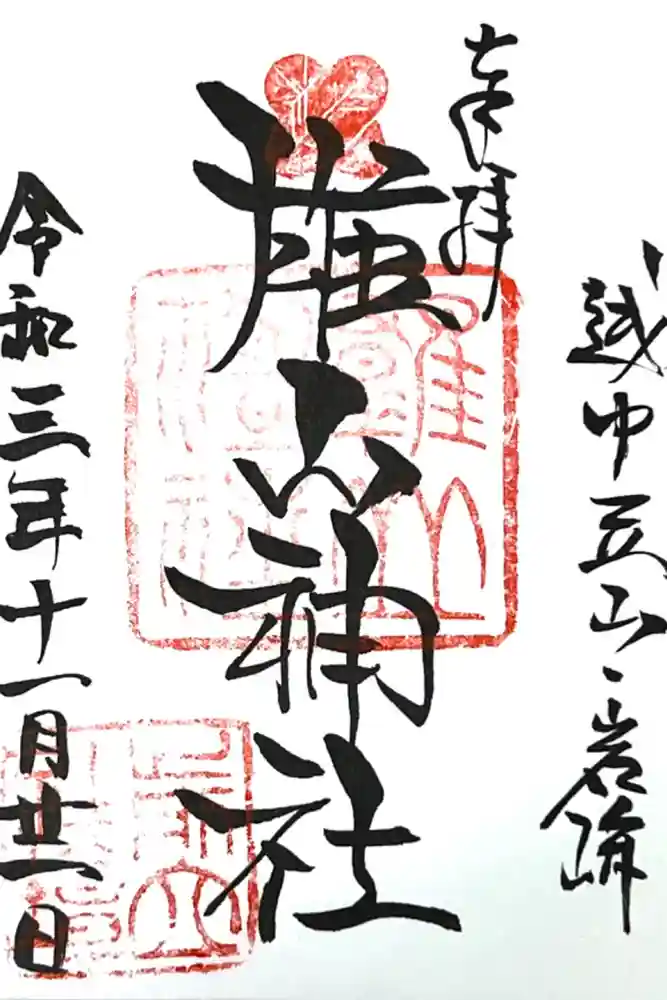 越中立山・岩峅
奉拝
雄山神社
令和三年十一月廿一日